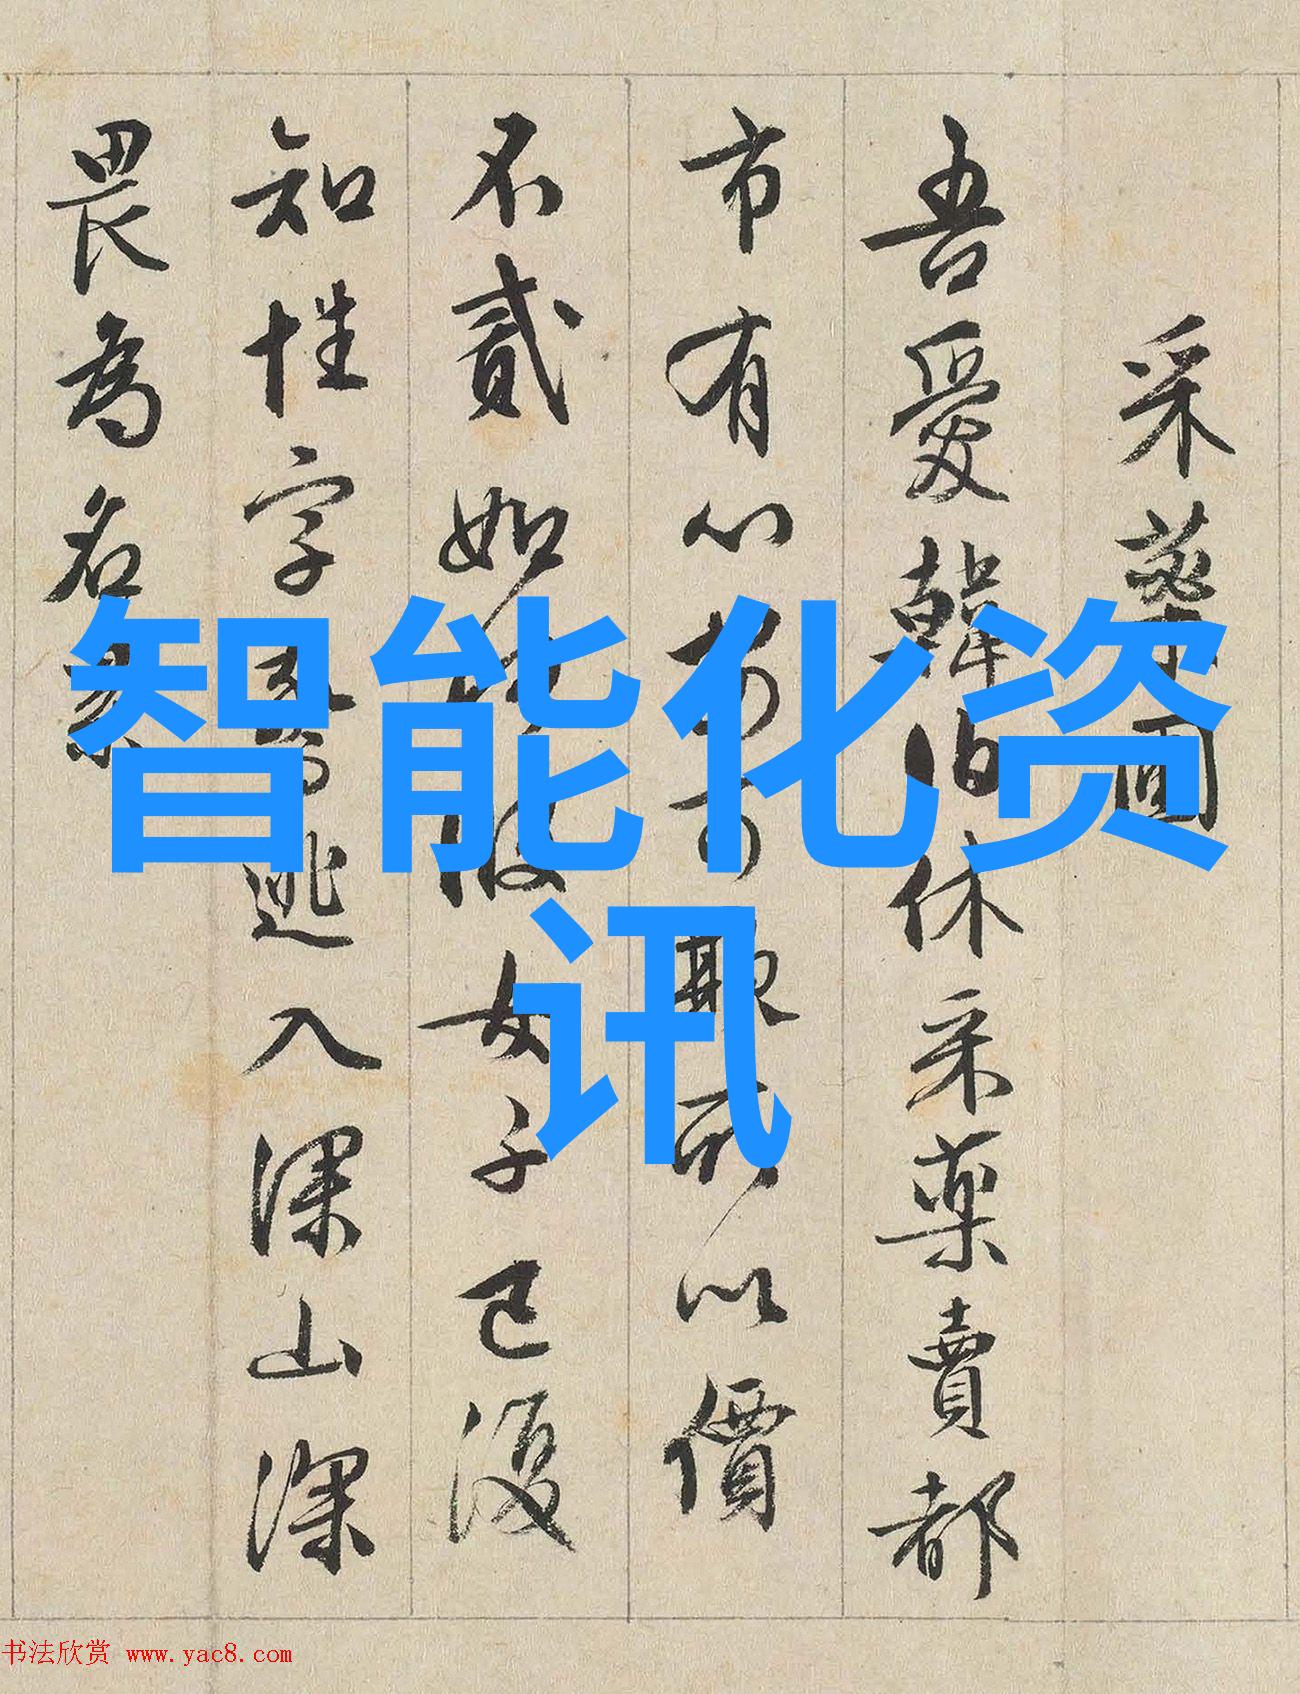 采藥圖
吾愛韓伯休采藥賣都
市有心可欺所以價
不貳如何彼女子已復
知性字逃入深山深
畏為名累
智能化资
讯
书法欣赏 www.yac8.com